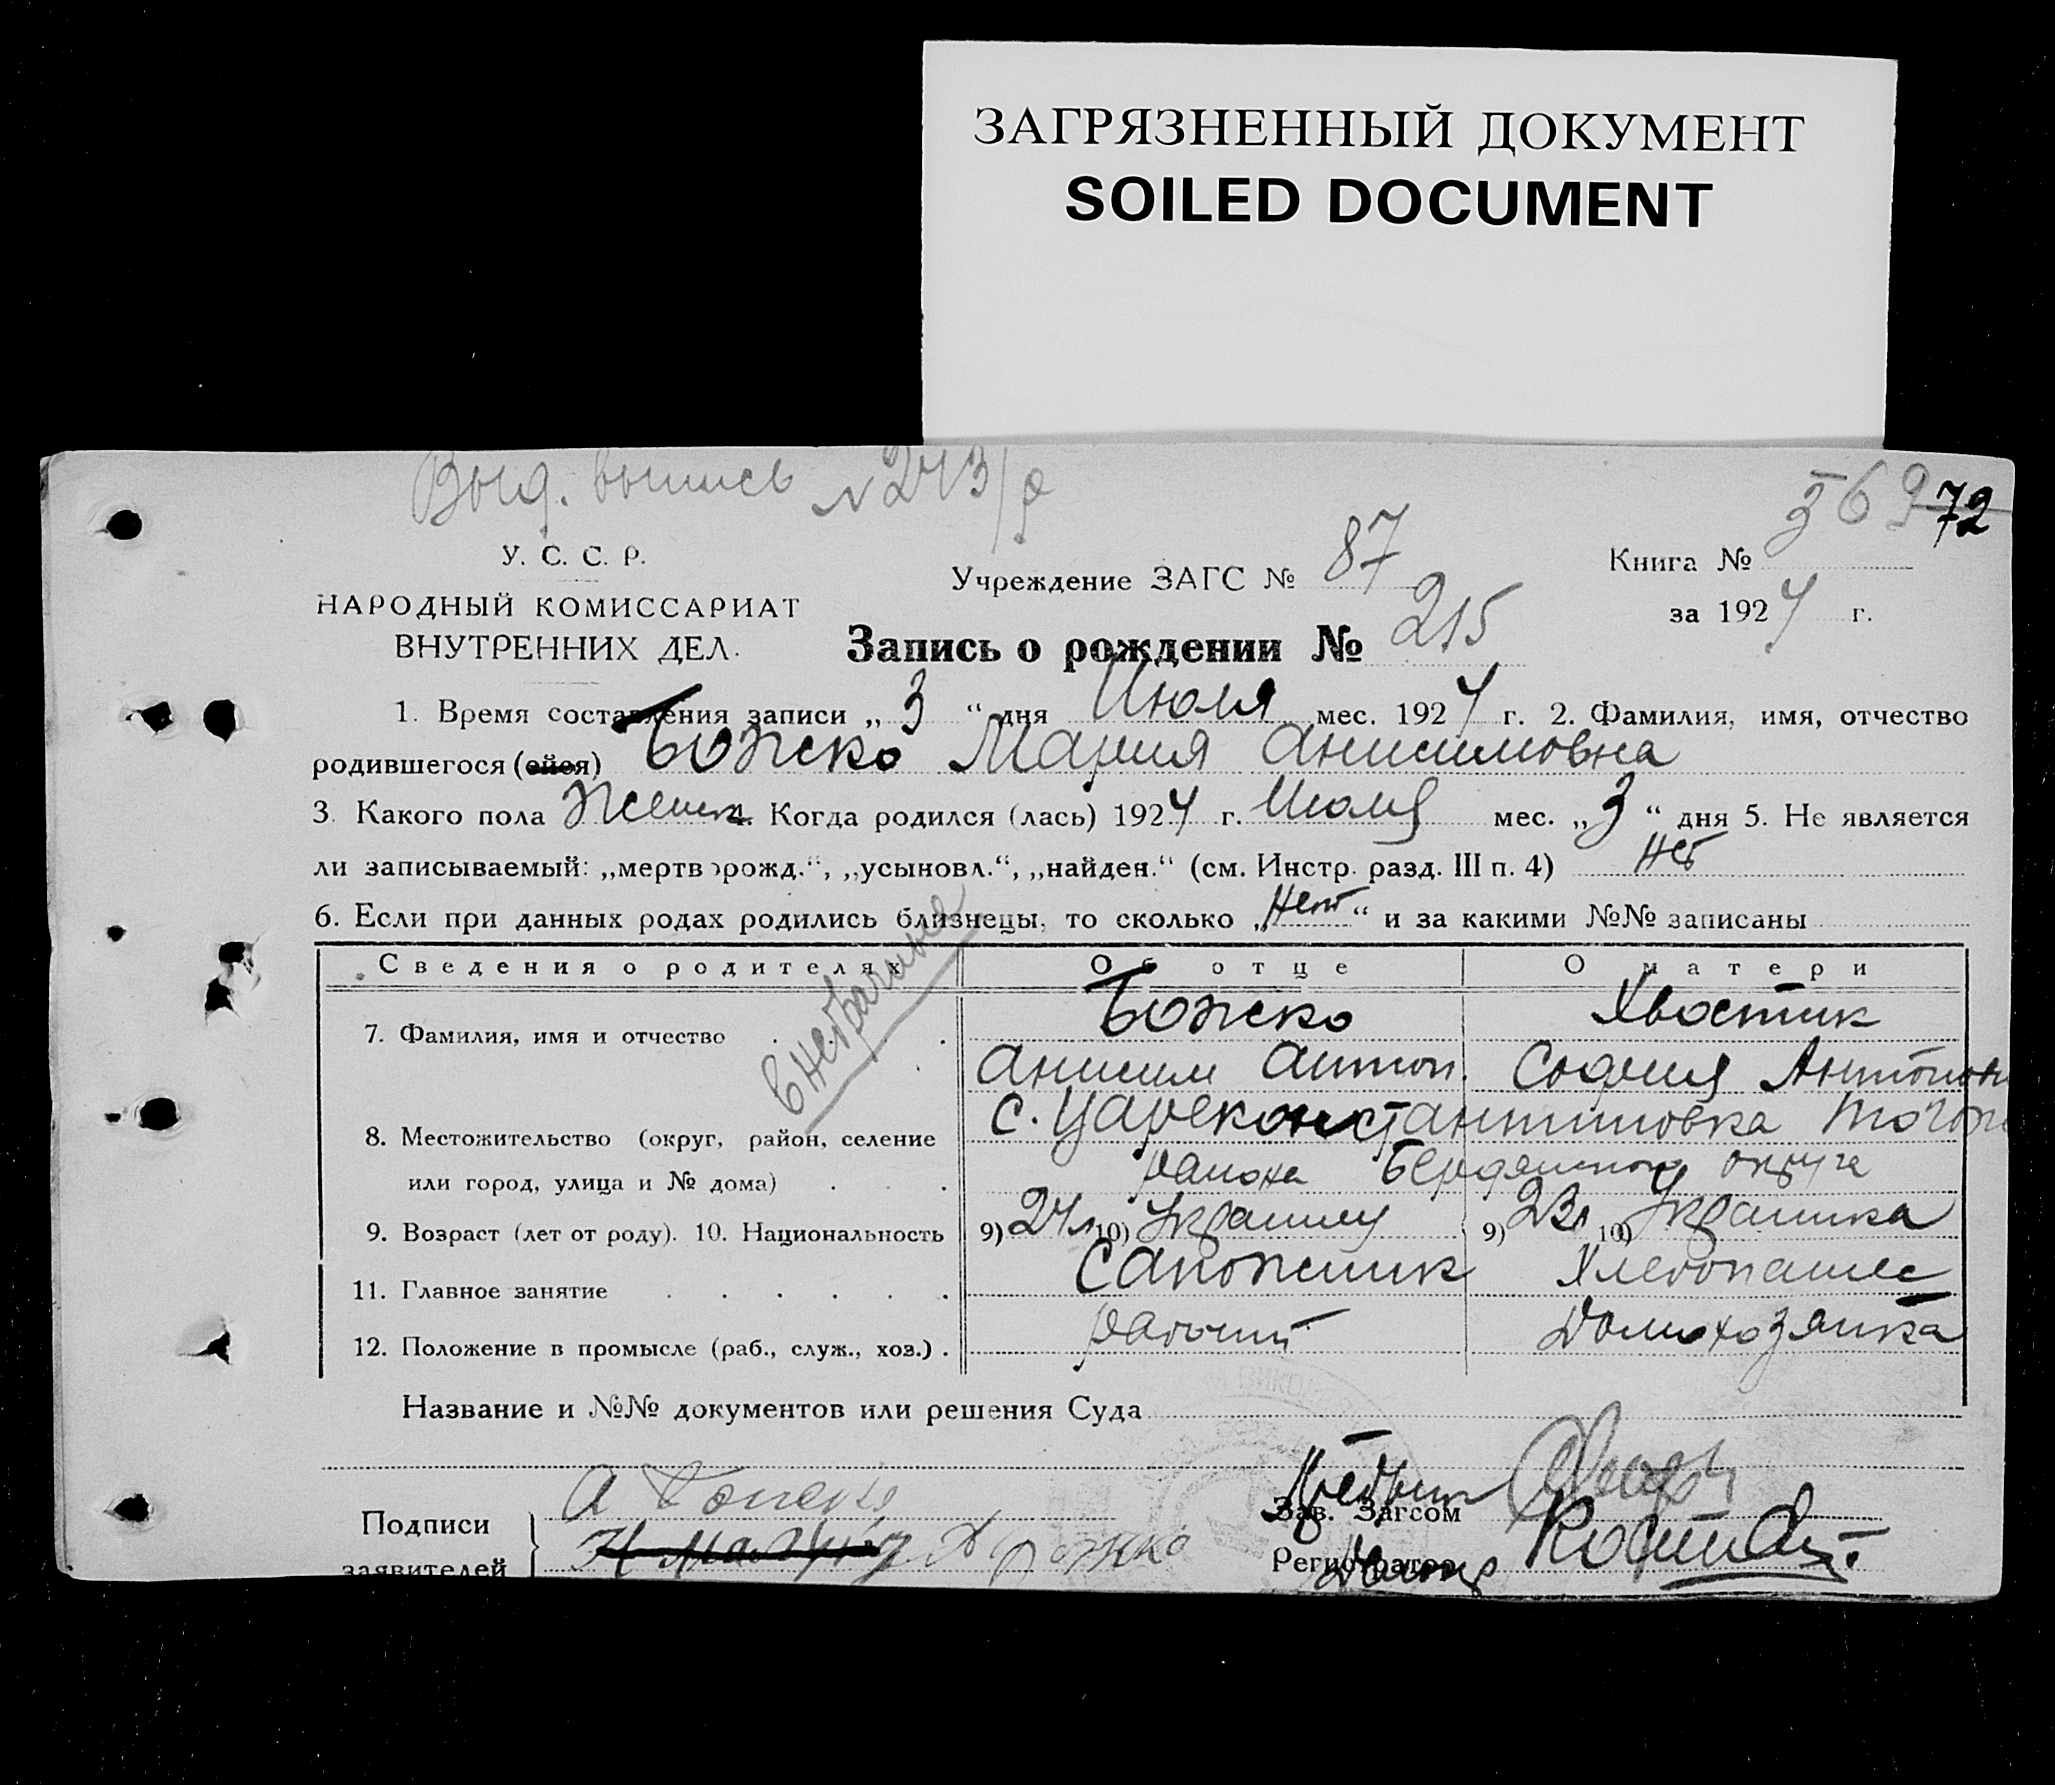 ЗАГРЯЗНЕННЫЙ ДОКУМЕНТ
SOILED DOCUMENT
Выд. выпись
72
У. С. С. Р.
НАРОДНЫЙ КОМИССАРИАТ
ВНУТРЕННИХ ДЕЛ.
Учреждение ЗАГС № 87
Книга № 
за 1924 г.
Запись о рождении № 215
1. Время составления записи „3“ дня Июля мес. 1924 г. 2. Фамилия, имя, отчество
родившегося (ейся) Божко Мария Анисимовна
3. Какого пола Женск. 4. Когда родился (лась) 1924 г. Июля мес. „3“ дня 5. Не является
ли записываемый: „мертворожд.“, „усыновл.“, „найден.“ (см. Инстр. разд. III п. 4) Нет
6. Если при данных родах родились близнецы, то сколько „Нет“ и за какими №№ записаны
внебрачные
Сведения о родителях Об отце О матери
7. Фамилия, имя и отчество Божко Хвостик
Анисим Антон. София Антонов
8. Местожительство (округ, район, селение с. Цареконстантиновка того ж
или город, улица и № дома) района Бердянского округа
9. Возраст (лет от роду). 10. Национальность 9) 24 л 10) Украинец 9) 23 л 10) Украинка
11. Главное занятие Сапожник Хлебопашес
12. Положение в промысле (раб., служ., хоз.) рабочий Домохозяйка
Название и №№ документов или решения Суда
Подписи
заявителей
А Божко
Зав. Загсом
Регистратор